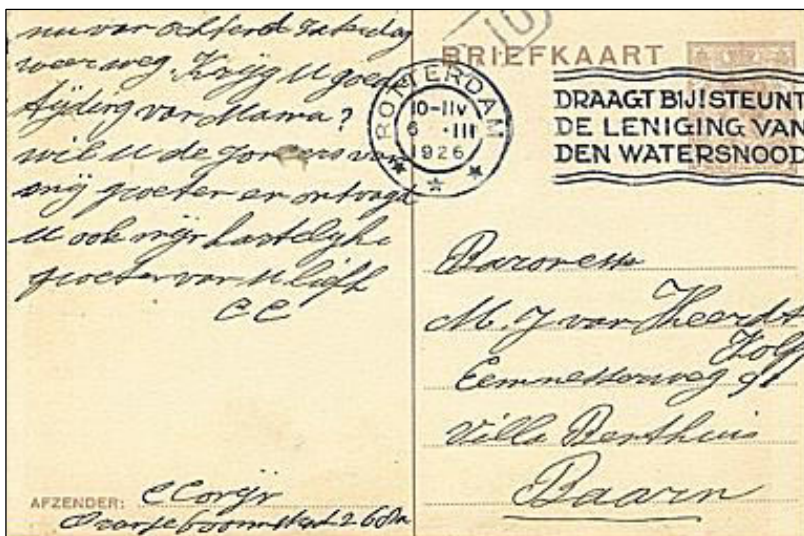 nu van ochtend Zaterdag
weer weg. Krijg U goed
tijding van Mama?
wil U de jongens van
mij groeten en ontvangt
U ook mijn hartelijke
groeten van U liefh
CC
AFZENDER: C Corijn
Oranjeboomstraat 268a
10
BRIEFKAART
ROTTERDAM
10-11V
6 .III
1926
DRAAGT BIJ! STEUNT
DE LENIGING VAN
DEN WATERSNOOD
Baronesse
M. J van Heerdt
Kolff
Eemnesserweg 91
Villa Benthuis
Baarn